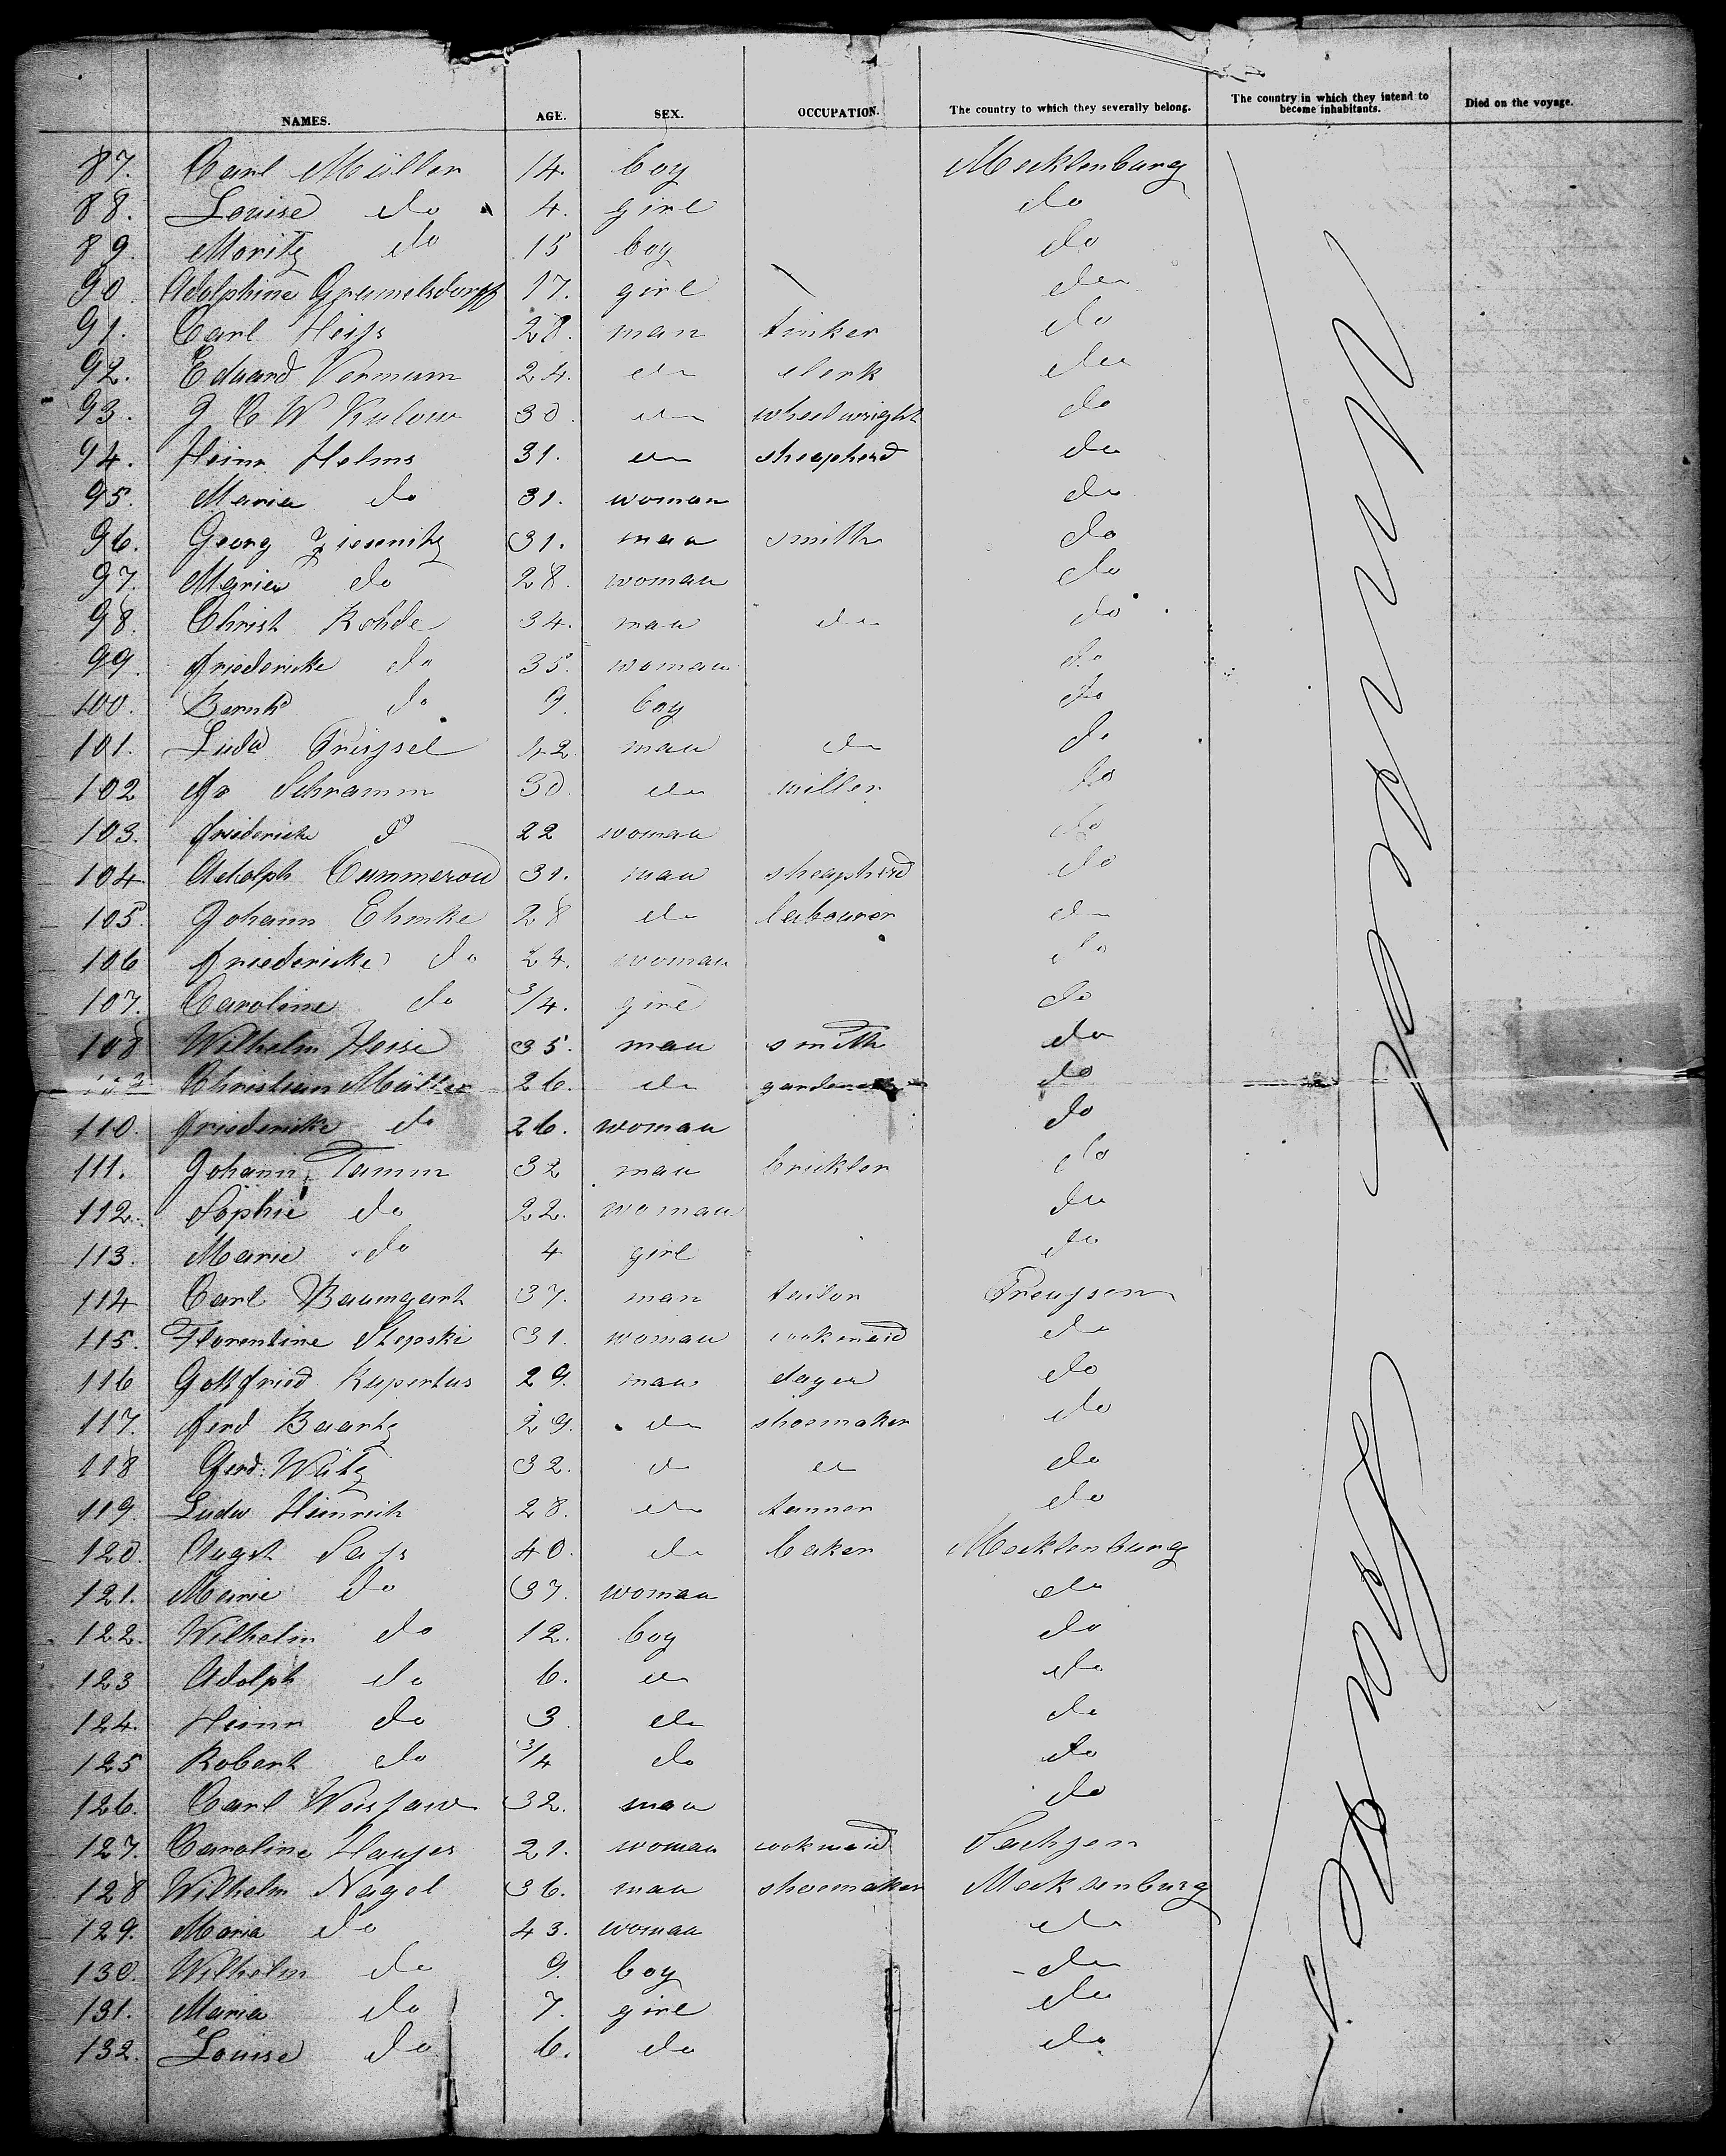 NAMES. AGE. SEX. OCCUPATION. The country to which they severally belong. The country in which they intend to become inhabitants. Died on the voyage.
87. Carl Müller 14. boy Mecklenburg
88. Louise do 4. girl do
89. Moritz do 15 boy do
90. Adolphine 17. girl do
91. Carl Heiss 28. man tinker do
92. Eduard 24. do clerk do
93. J C W Kulow 30. do wheelwright do
94. Heinr. Helms 31. do sheapherd do
95. Maria do 31. woman do
96. Georg Ziesenitz 31. man smith do
97. Maria do 28. woman do
98. Christ Rohde 34. man do do
99. friedericke do 35. woman do
100. Bernhd do 9. boy do
101. Ludw 42 man do do
102 Jo Schramm 30. do miller do
103. friedericke do 22 woman do
104 Adolph Cummerow 31. man sheapherd do
105. Johann Ehmke 28 do labourer do
106 friedericke do 24. woman do
107. Caroline do 3/4. girl do
108 Wilhelm Heise 35. man smith do
109 Christian Müller 26. do gardener do
110. friedericke do 26. woman do
111. Johann Tamm 32 man brickler do
112. Sophie do 22. woman do
113. Marie do 4 girl do
114 Carl Baumgart 37. man tailor Preussen
115. Florentine 31. woman cookmaid do
116 Gottfried Rupertus 29. man do
117. ferd Baartz 29. do shoemaker do
118 ferd. 32. do do do
119. Ludw Heinrich 28. do tanner do
120. Augst Sass 40. do baker Mecklenburg
121. Marie do 37. woman do
122. Wilhelm do 12. boy do
123 Adolph do 6. do do
124. Heinr do 3. do do
125 Robert do 3/4 do do
126. Carl 32. man do
127. Caroline 21. woman cookmaid Sachsen
128 Wilhelm Nagel 36. man shoemaker Mecklenburg
129. Maria do 43. woman do
130. Wilhelm do 9. boy do
131. Maria do 7. girl do
132. Louise do 6. do do